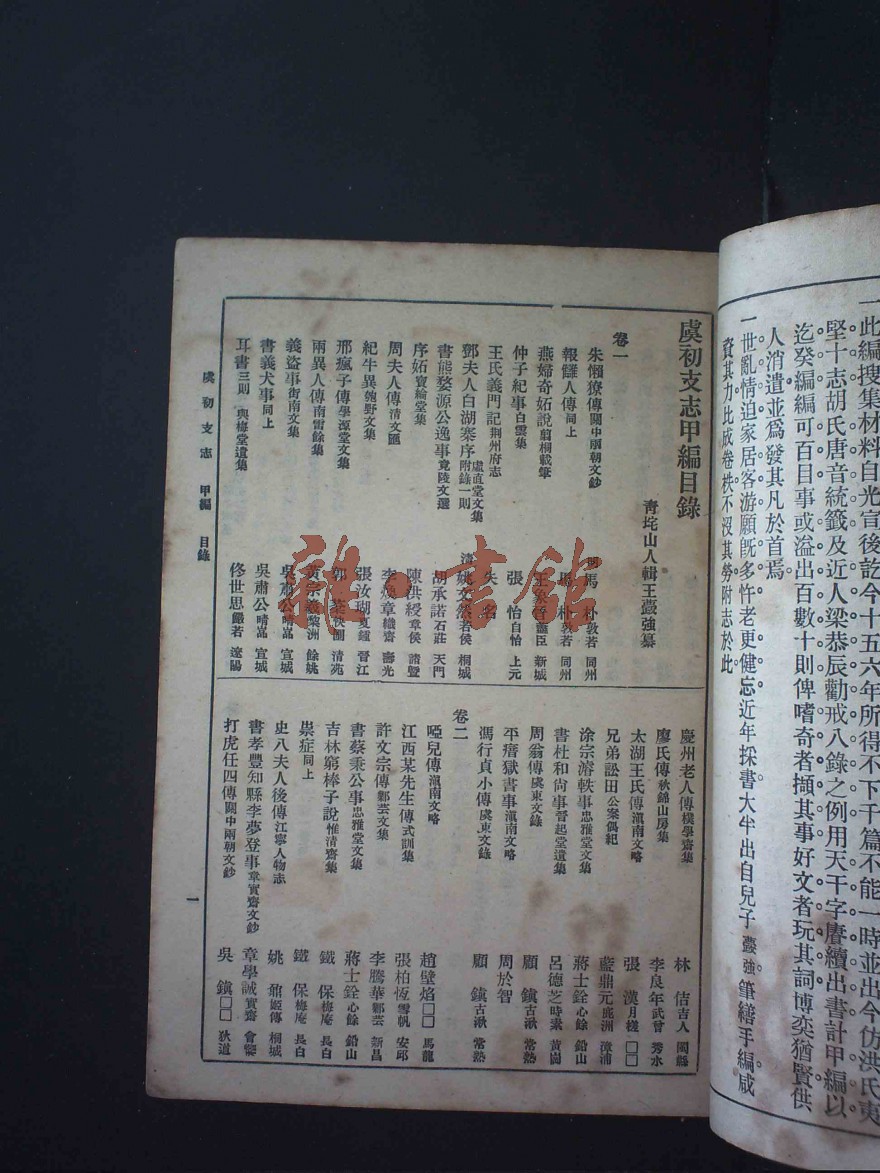 一此編搜集材料自光宣後訖今十五六年所得不下千篇不能一時並出今仿洪氏夷
堅十志胡氏唐音統籤及近人梁恭辰勸戒八錄之例用天干字賡續出書計甲編以
迄癸編編可百目事或溢出百數十則俾嗜奇者擷其事好文者玩其詞博奕猶賢供
人消遣並爲發其凡於首焉
一世亂情迫家居客游願既多忤老更健忘近年採書大半出自兒子靈強筆繕手編咸
資其力比成卷帙不沒其勞附志於此
虞初支志甲編目錄
青垞山人輯王靈強纂
卷一
朱懶獠傳關中兩朝文鈔 明馬 朴敦若 同州
報讎人傳同上 馬 朴敦若 同州
燕婦奇妬說翦桐載筆 王象晉藎臣 新城
仲子紀事白雲集 張 怡自怡 上元
王氏義門記荆州府志 失 名
鄧夫人白湖寨序虛直堂文集附錄一則 清姚文然若侯 桐城
書熊婺源公逸事竟陵文選 胡承諾石莊 天門
序妬寶綸堂集 陳洪綬章侯 諸曁
周夫人傳清文匯 李煥章織齋 壽光
紀牛異匏野文集 張汝瑚夏鐘 晉江
邢瘋子傳學源堂文集 郭 棻快圃 清苑
兩異人傳南雷餘集 黃宗羲黎洲 餘姚
義盜事街南文集 吳肅公晴嵓 宣城
書義犬事同上 吳肅公晴嵓 宣城
耳書三則 與梅堂遺集 佟世思儼若 遼陽
慶州老人傳樸學齋集 林 佶吉人 閩縣
廖氏傳秋錦山房集 李良年武曾 秀水
太湖王氏傳滇南文略 張 漢月槎 □□
兄弟訟田公案偶紀 藍鼎元鹿洲 漳浦
涂宗濬軼事忠雅堂文集 蔣士銓心餘 鉛山
書杜和尙事晉起堂遺集 呂德芝時素 黃岡
周翁傳虞東文錄 顧 鎭古湫 常熟
平瘄獄書事滇南文略 周於智
馮行貞小傳虞東文錄 顧 鎭古湫 常熟
卷二
啞兒傳滇南文略 趙璧焰□□ 馬龍
江西某先生傳式訓集 張柏恆雪帆 安邱
許文宗傳鄴芸文集 李騰華鄴芸 新昌
書蔡乘公事忠雅堂文集 蔣士銓心餘 鉛山
吉林窮棒子說惟清齋集 鐵 保梅庵 長白
祟症同上 鐵 保梅庵 長白
史八夫人後傳江寧人物志 姚 鼐姬傳 桐城
書孝豐知縣李夢登事章實齋文鈔 章學誠實齋 會稽
打虎任四傳關中兩朝文鈔 吳 鎭□□ 狄道
虞初支志 甲編 目錄
一
雜·書館